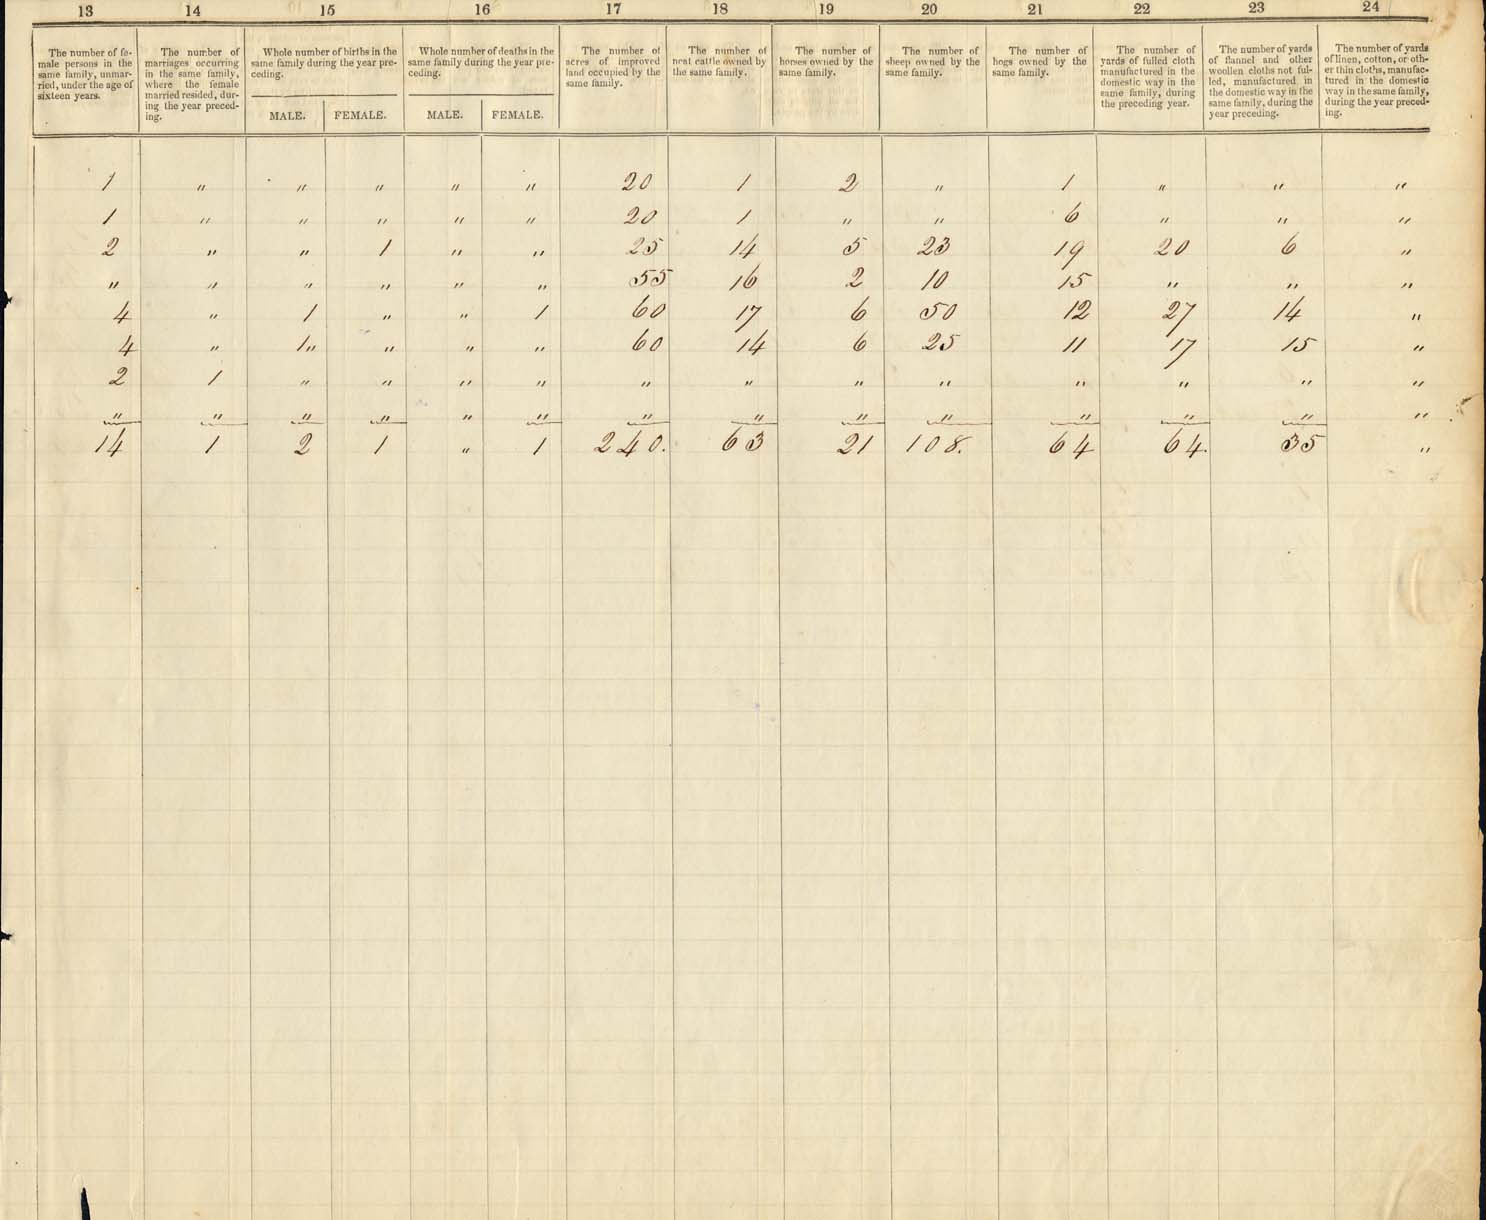 13 14 15 16 17 18 19 20 21 22 23 24
The number of fe-
male persons in the
same family, unmar-
ried, under the age of
sixteen years.
The number of
marriages occurring
in the same family,
where the female
married resided, dur-
ing the year preced-
ing.
Whole number of births in the
same family during the year pre-
ceding.
MALE. FEMALE.
Whole number of deaths in the
same family during the year pre-
ceding.
MALE. FEMALE.
The number of
acres of improved
land occupied by the
same family.
The number of
neat cattle owned by
the same family.
The number of
horses owned by the
same family.
The number of
sheep owned by the
same family.
The number of
hogs owned by the
same family.
The number of
yards of fulled cloth
manufactured in the
domestic way in the
same family, during
the preceding year.
The number of yards
of flannel and other
woollen cloths not ful-
led, manufactured in
the domestic way in the
same family, during the
year preceding.
The number of yards
of linen, cotton, or oth-
er thin cloths, manufac-
tured in the domestic
way in the same family,
during the year preced-
ing.
1 " " " " " 20 1 2 " 1 " " "
1 " " " " " 20 1 " " 6 " " "
2 " " 1 " " 25 14 5 23 19 20 6 "
" " " " " " 55 16 2 10 15 " " "
4 " 1 " " 1 60 17 6 50 12 27 14 "
4 " 1" " " " 60 14 6 25 11 17 15 "
2 1 " " " " " " " " " " " "
" " " " " " " " " " " " " "
14 1 2 1 " 1 240. 63 21 108. 64 64. 35 "